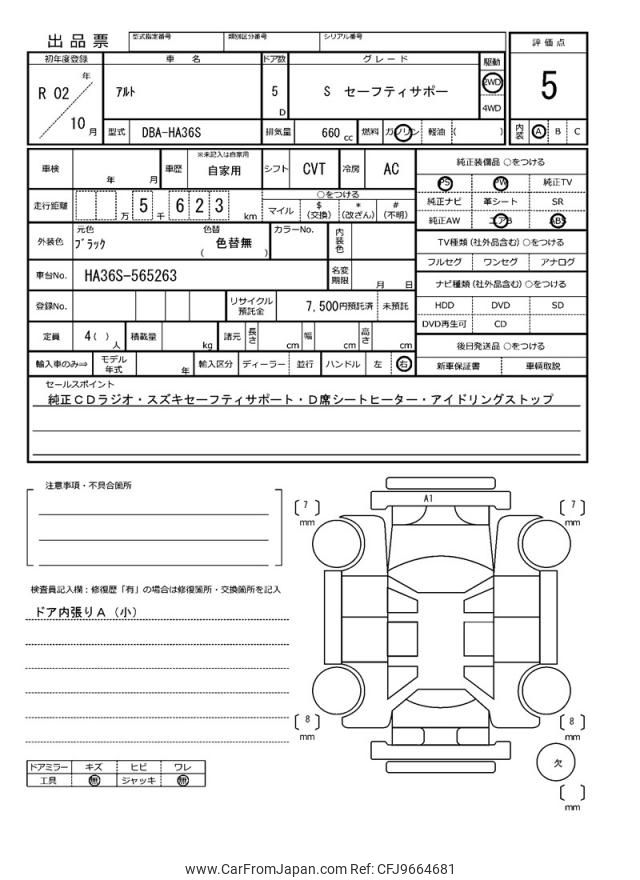 出品票
型式指定番号 類別区分番号 シリアル番号
評価点
5
内装 A B C
初年度登録 車名 ドア数 グレード 駆動
R 02 年 10 月
ｱﾙﾄ 5 D S セーフティサポー 2WD 4WD
型式 DBA-HA36S 排気量 660 cc 燃料 ガソリン 軽油 ( )
車検 年 月 車歴 ※未記入は自家用 自家用 シフト CVT 冷房 AC
走行距離 万 5 千 6 2 3 km
○をつける
マイル $ (交換) * (改ざん) # (不明)
外装色 元色 ﾌﾞﾗｯｸ 色替 色替無 ( ) カラーNo. 内装色
車台No. HA36S-565263 名変期限 月 日
登録No. リサイクル預託金 7,500円預託済 未預託
定員 4( ) 人 積載量 kg 諸元 長さ cm 幅 cm 高さ cm
輸入車のみ⇒ モデル年式 年 輸入区分 ディーラー 並行 ハンドル 左 右
純正装備品 ○をつける
PS PW 純正TV
純正ナビ 革シート SR
純正AW エアB ABS
TV種類(社外品含む) ○をつける
フルセグ ワンセグ アナログ
ナビ種類(社外品含む) ○をつける
HDD DVD SD
DVD再生可 CD
後日発送品 ○をつける
新車保証書 車輌取説
セールスポイント
純正ＣＤラジオ・スズキセーフティサポート・Ｄ席シートヒーター・アイドリングストップ
注意事項・不具合箇所
検査員記入欄：修復歴「有」の場合は修復箇所・交換箇所を記入
ドア内張りＡ（小）
ドアミラー キズ ヒビ ワレ
工具 無 ジャッキ 無
A1
7 mm
7 mm
8 mm
8 mm
欠
mm
www.CarFromJapan.com Ref: CFJ9664681